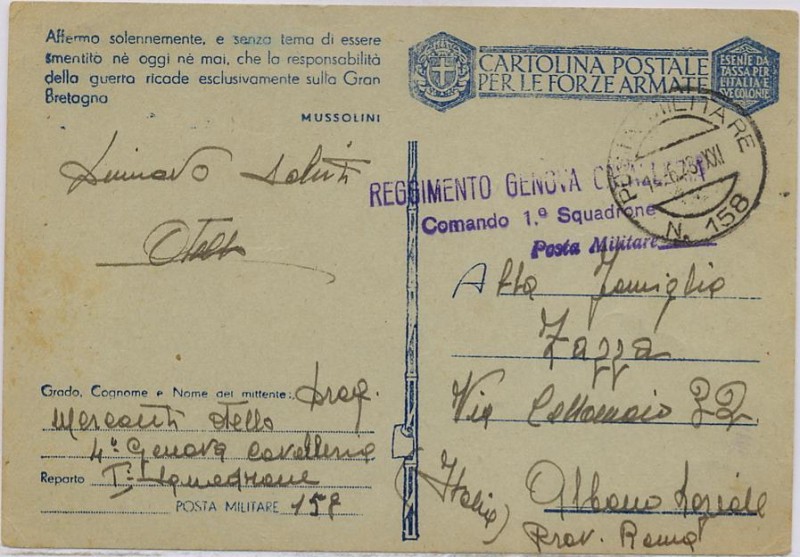 Affermo solennemente, e senza tema di essere
smentito nè oggi nè mai, che la responsabilità
della guerra ricade esclusivamente sulla Gran
Bretagna
MUSSOLINI
saluti
Otello
Grado, Cognome e Nome del mittente: Drag.
Mercanti Otello
4° Genova Cavalleria
Reparto I° Squadrone
POSTA MILITARE 158
CARTOLINA POSTALE
PER LE FORZE ARMATE
ESENTE DA
TASSA PER
L'ITALIA E
SVE COLONIE
POSTA MILITARE
XXI
N. 158
REGGIMENTO GENOVA
Comando 1.º Squadrone
Posta Militare
Alla Famiglia
Zazza
Via 32
(Italia) Albano Laziale
Prov. Roma